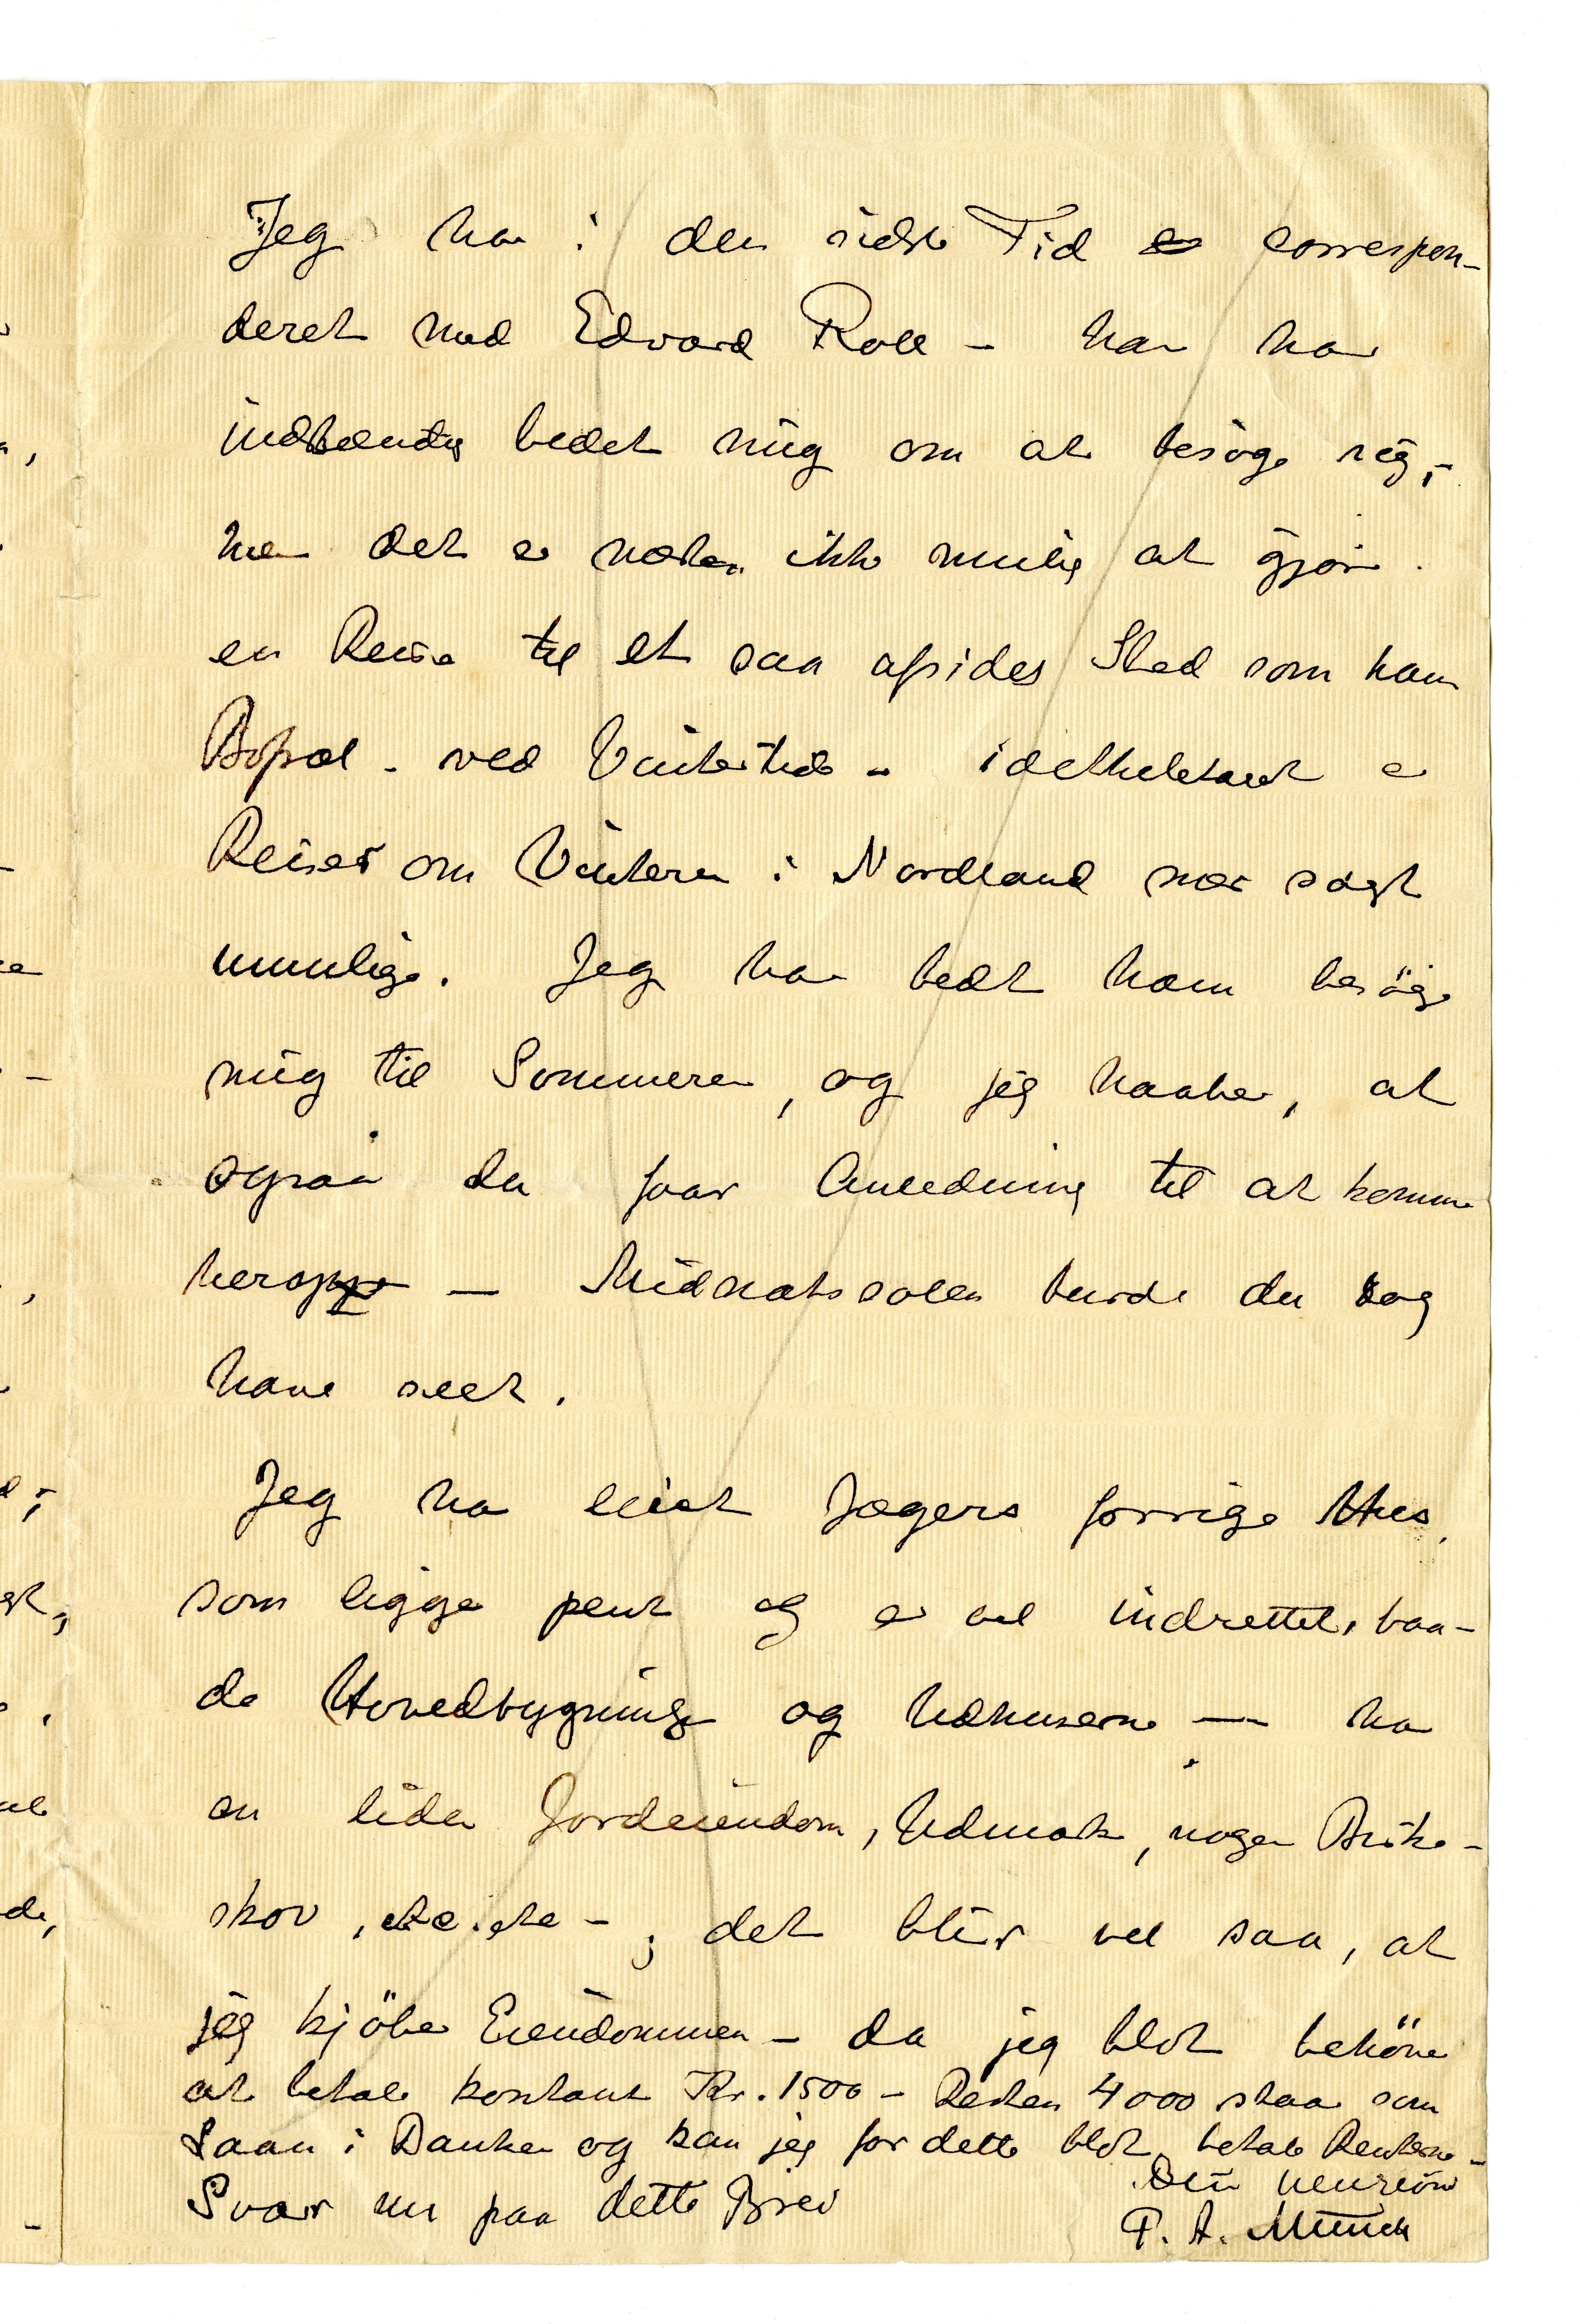 Jeg har i den sidste Tid correspon-
deret med Edvard Roll – han har
indstendig bedet mig om at besöge sig,–
men det er næsten ikke mulig at gjöre
en Reise til et saa afsides Sted som hans
Bopæl – ved Vintertide – idetheletaget er
Reiser om Vinteren i Nordland nær sagt
umulige. Jeg har bedt ham besöge
mig til Sommeren, og jeg haaber, at
ogsaa du faar Anledning til at komme
herop – Midnatssolen burde du dog
have seet.
Jeg har leiet Jægers forrige Hus,
som ligger pent og er vel indrettet, baa-
de Hovedbygning og Udhusene – har
en liden Jordeiendom, Udmark, nogen Birke-
skov, etc. etc – ; det blir vel saa, at
jeg kjöber Eiendommen – da jeg blot behöver
at betale kontant Kr. 1500 – Resten 4000 staar som
Laan i Banken og kan jeg for dette blot betale Renterne –
Svar nu paa dette Brev
Din hengivne
P. A. Munch